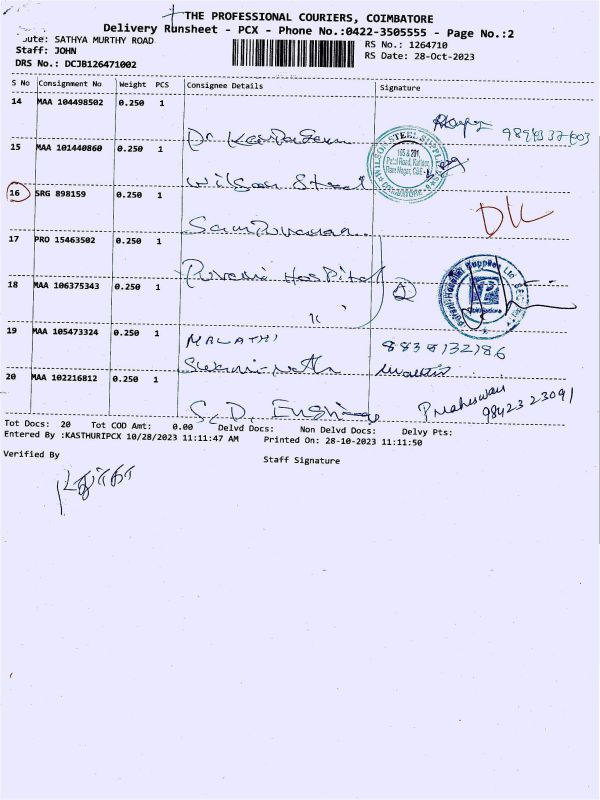 THE PROFESSIONAL COURIERS, COIMBATORE
Delivery Runsheet - PCX - Phone No.:0422-3505555 - Page No.:2
oute: SATHYA MURTHY ROAD
RS No.: 1264710
Staff: JOHN
RS Date: 28-Oct-2023
DRS No.: DCJB126471002
S No Consignment No Weight PCS Consignee Details Signature
14 MAA 104498502 0.250 1
15 MAA 101440860 0.250 1 Wilson Steel
16 SRG 898159 0.250 1
17 PRO 15463502 0.250 1 Hospital
18 MAA 106375343 0.250 1
19 MAA 105473324 0.250 1 MALATHI 8838132186
20 MAA 102216812 0.250 1 S. D. 98423 23091
Tot Docs: 20 Tot COD Amt: 0.00 Delvd Docs: Non Delvd Docs: Delvy Pts:
Entered By :KASTHURIPCX 10/28/2023 11:11:47 AM Printed On: 28-10-2023 11:11:50
Verified By
Staff Signature